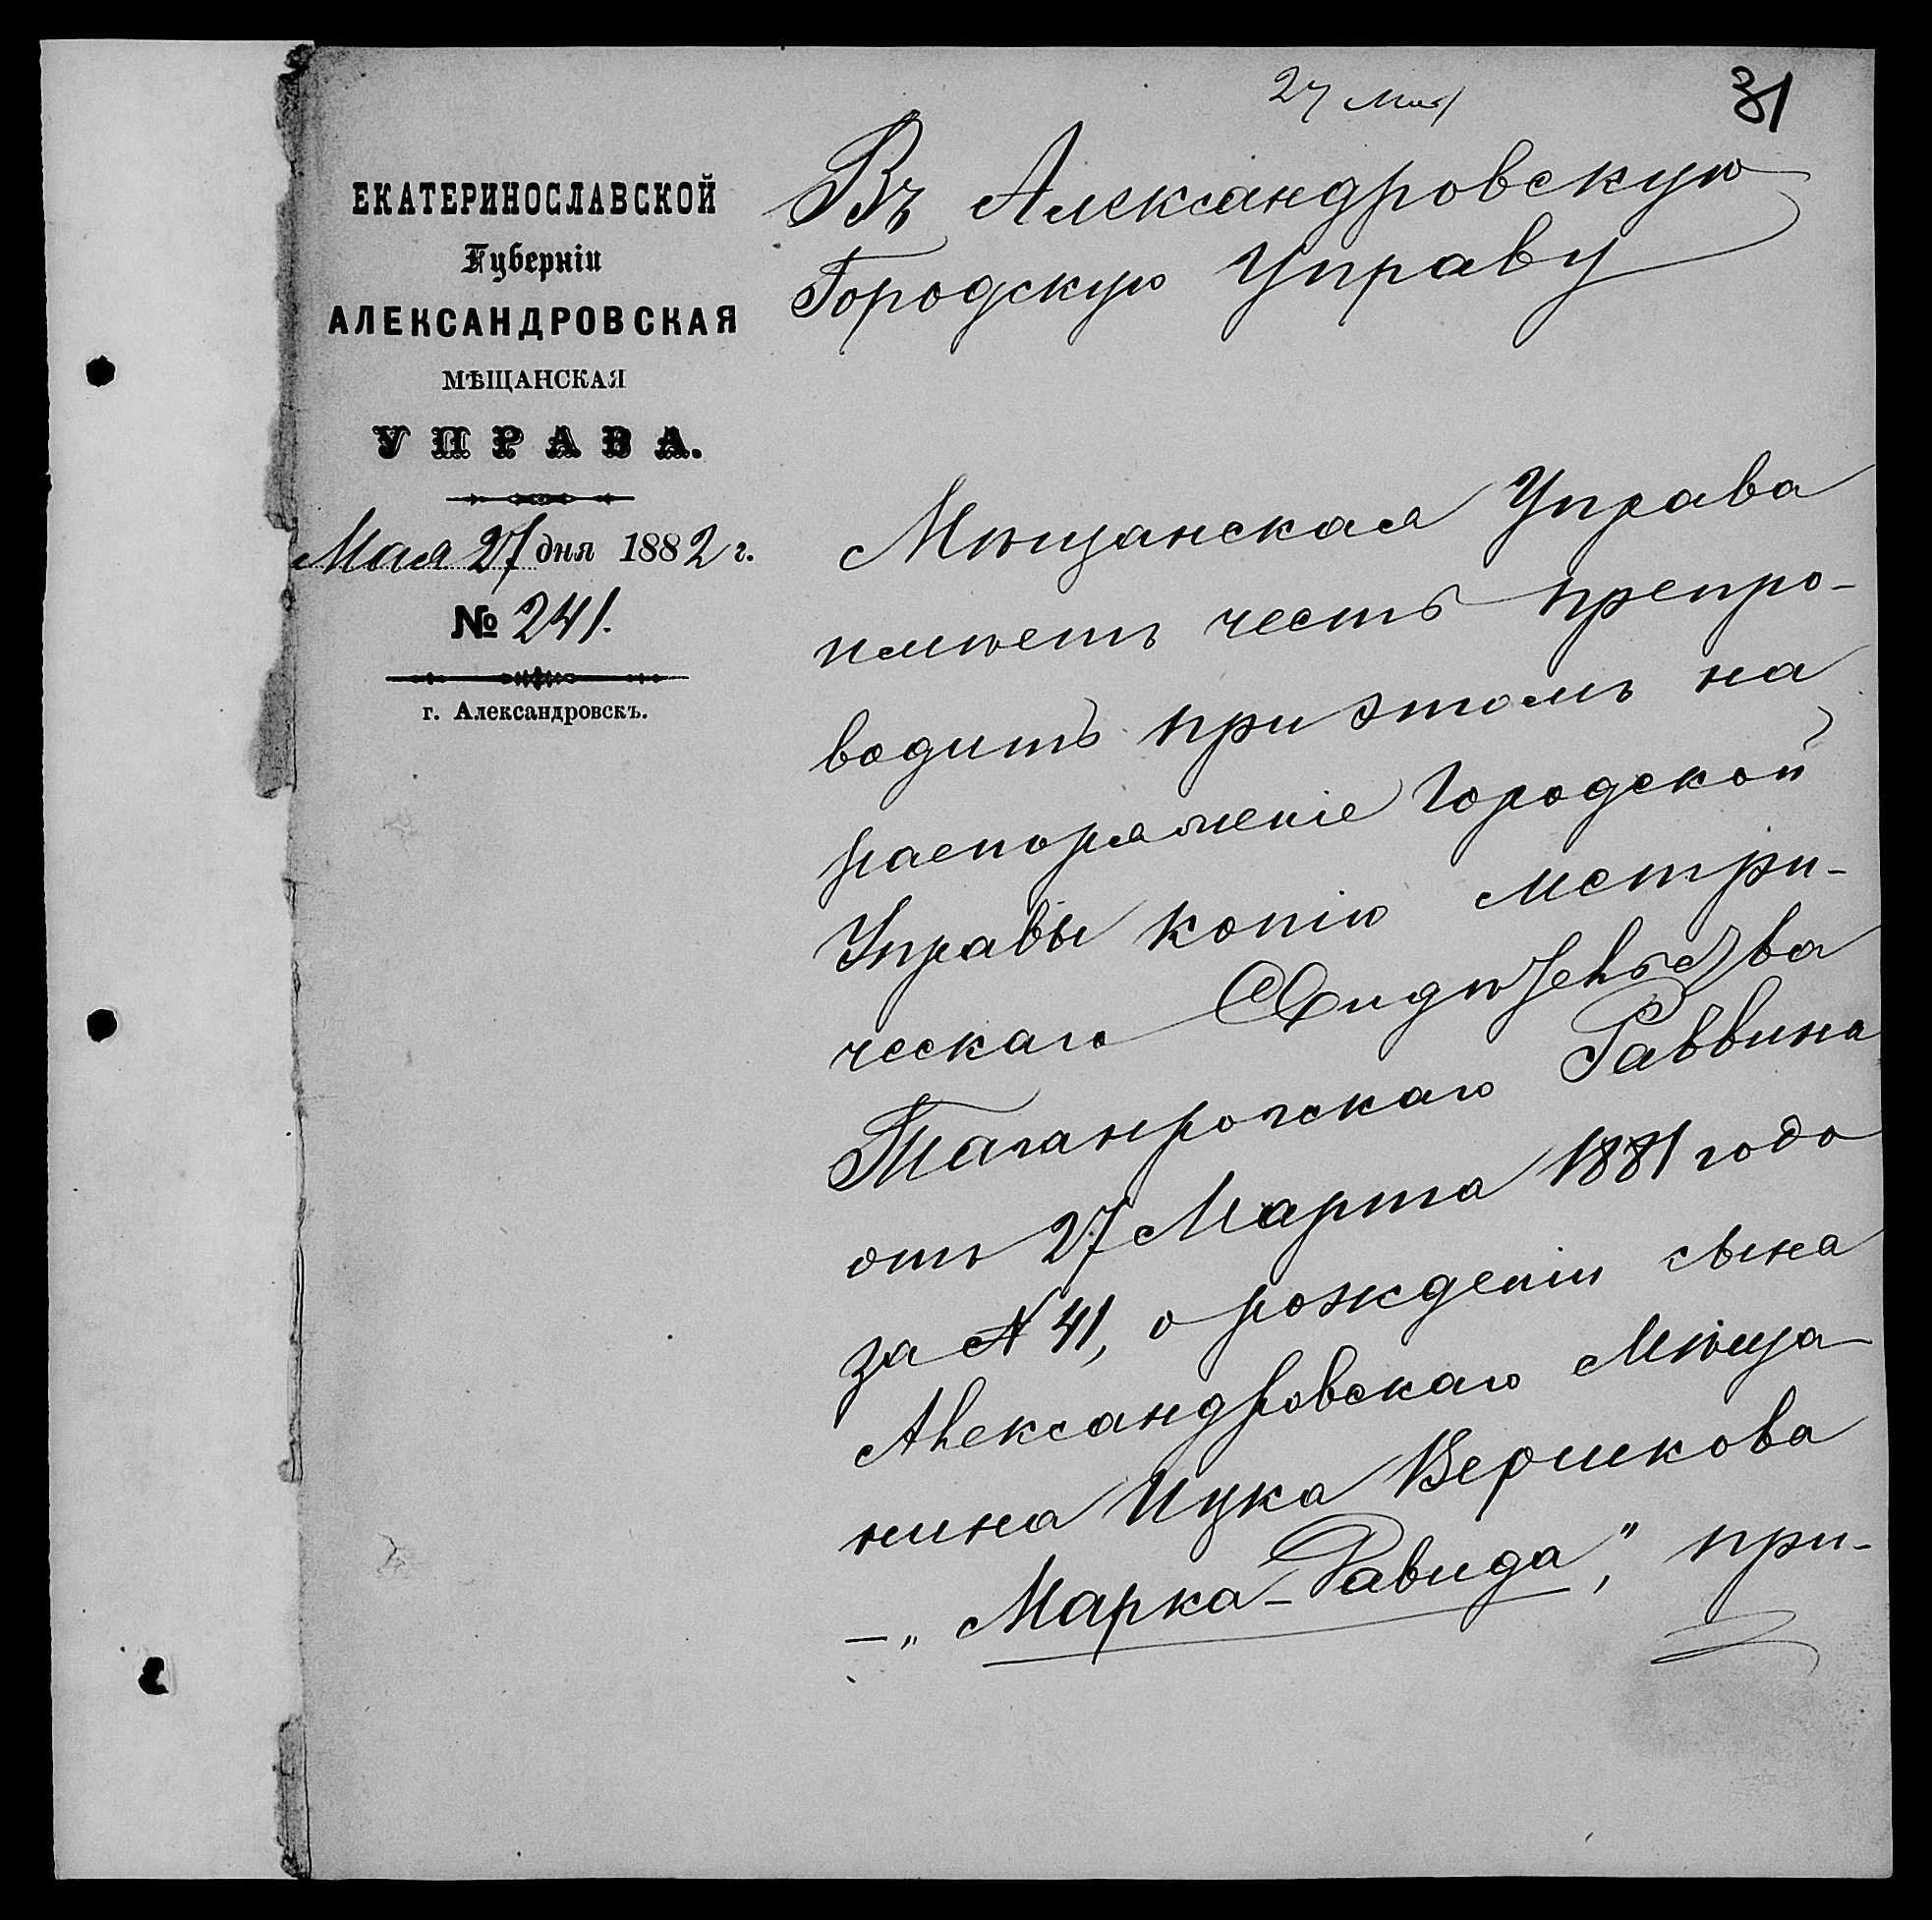 27 мая
31
ЕКАТЕРИНОСЛАВСКОЙ
Губерніи
АЛЕКСАНДРОВСКАЯ
МѢЩАНСКАЯ
УПРАВА.
Мая 27 дня 1882 г.
№ 241.
г. Александровскъ.
Въ Александровскую
Городскую Управу
Мѣщанская Управа
имѣетъ честь препро-
водить при этомъ на
распоряженіе Городской
Управы копію метри-
ческаго Свидѣтельства
Таганрогскаго Раввина
отъ 27 Марта 1881 года
за № 41, о рожденіи сына
Александровскаго Мѣща-
нина Ицка Вершкова
—„Марка-Давида", при-